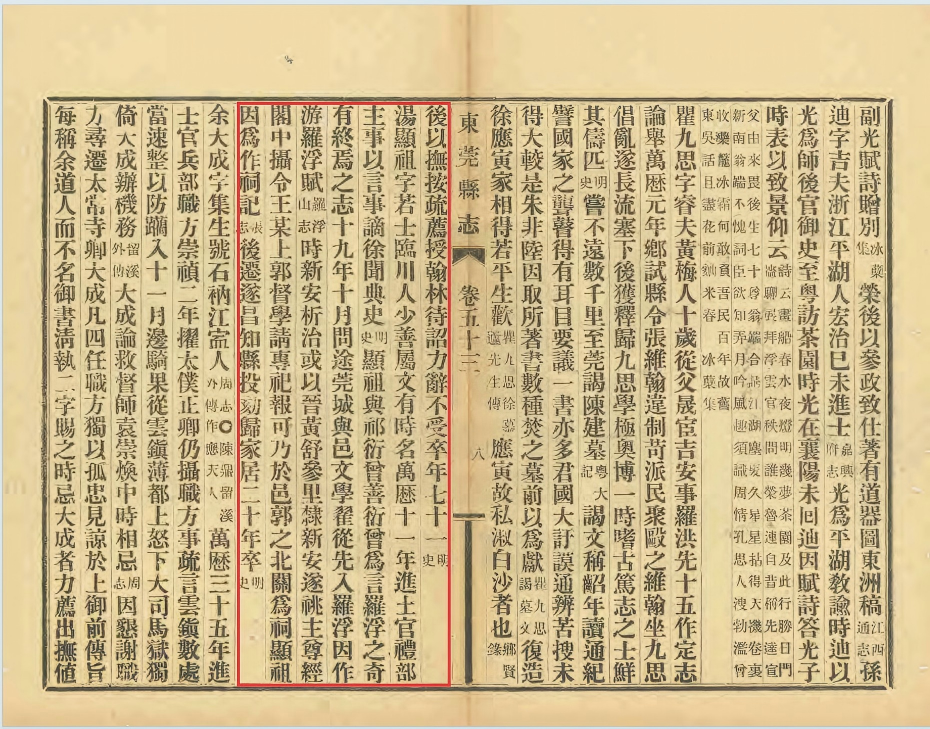 副光賦詩贈別冰蘗榮後以參政致仕著有道器圖東洲稿江西通志孫
迪字吉夫浙江平湖人宏治己未進士嘉興府志光爲平湖教諭時迪以
光爲師後官御史至粵訪茶園時光在襄陽未囘迪因賦詩答光子
時表以致景仰云詩云畫船春水夜燈明幾夢茶園及此行勝日門聊再拜浮雲官秩問誰榮魯連自昔稱先達宣
父由來畏後生七十尊翁端合話江湖久星拈得天機卷裏新南翁端不愧詞臣欲知弄月吟風趣須識周情孔思人溲勃濫曾
收籠冰銜何敢負吾民百年故舊東吳話且盡花前米春冰蘗集
瞿九思字睿夫黃梅人十歲從父晟宦吉安事羅洪先十五作定志
論舉萬歷元年鄉試縣令張維翰違制苛派民聚毆之維翰坐九思
倡亂逐長流塞下後獲釋歸九思學極奧博一時嗜古篤志之士鮮
其儔匹明史嘗不遠數千里至莞謁陳建墓粵大記謁文稱齠年讀通紀
譬國家之聾瞽得有耳目要議一書亦多君國大訏謨通辨苦搜未
得大較是朱非陸因取所著書數種焚之墓前以爲獻瞿九思謁墓文復造
徐應寅家相得若平生歡瞿九思徐先生傳應寅故私淑白沙者也鄉賢錄
東莞縣志 卷五十三 八
後以撫按疏薦授翰林待詔力辭不受卒年七十一明史
湯顯祖字若士臨川人少善屬文有時名萬歷十一年進士官禮部
主事以言事謫徐聞典史明史顯祖與祁衍曾善衍曾爲言羅浮之奇
有終焉之志十九年十月問途莞城與邑文學翟從先入羅浮因作
游羅浮賦羅浮山志時新安析治或以晉黃舒參里隸新安遂祧主尊經
閣中攝令王某上郭督學請專祀報可乃於邑郭之北關爲祠顯祖
因爲作祠記張志後遷遂昌知縣投劾歸家居二十年卒明史
余大成字集生號石衲江寍人周志外傳作應天人〇陳鼎留溪萬歷三十五年進
士官兵部職方崇禎二年擢太僕止卿仍攝職方事疏言雲鎭數處
當速整以防躪入十一月邊騎果從雲鎭薄都上怒下大司馬獄獨
倚大成辦機務留溪外傳大成論救督師袁崇煥中時相忌周志因懇謝職
方尋遷太常寺卿大成凡四任職方獨以孤忠見諒於上御前傳旨
每稱余道人而不名御書淸執二字賜之時忌大成者力薦出撫値